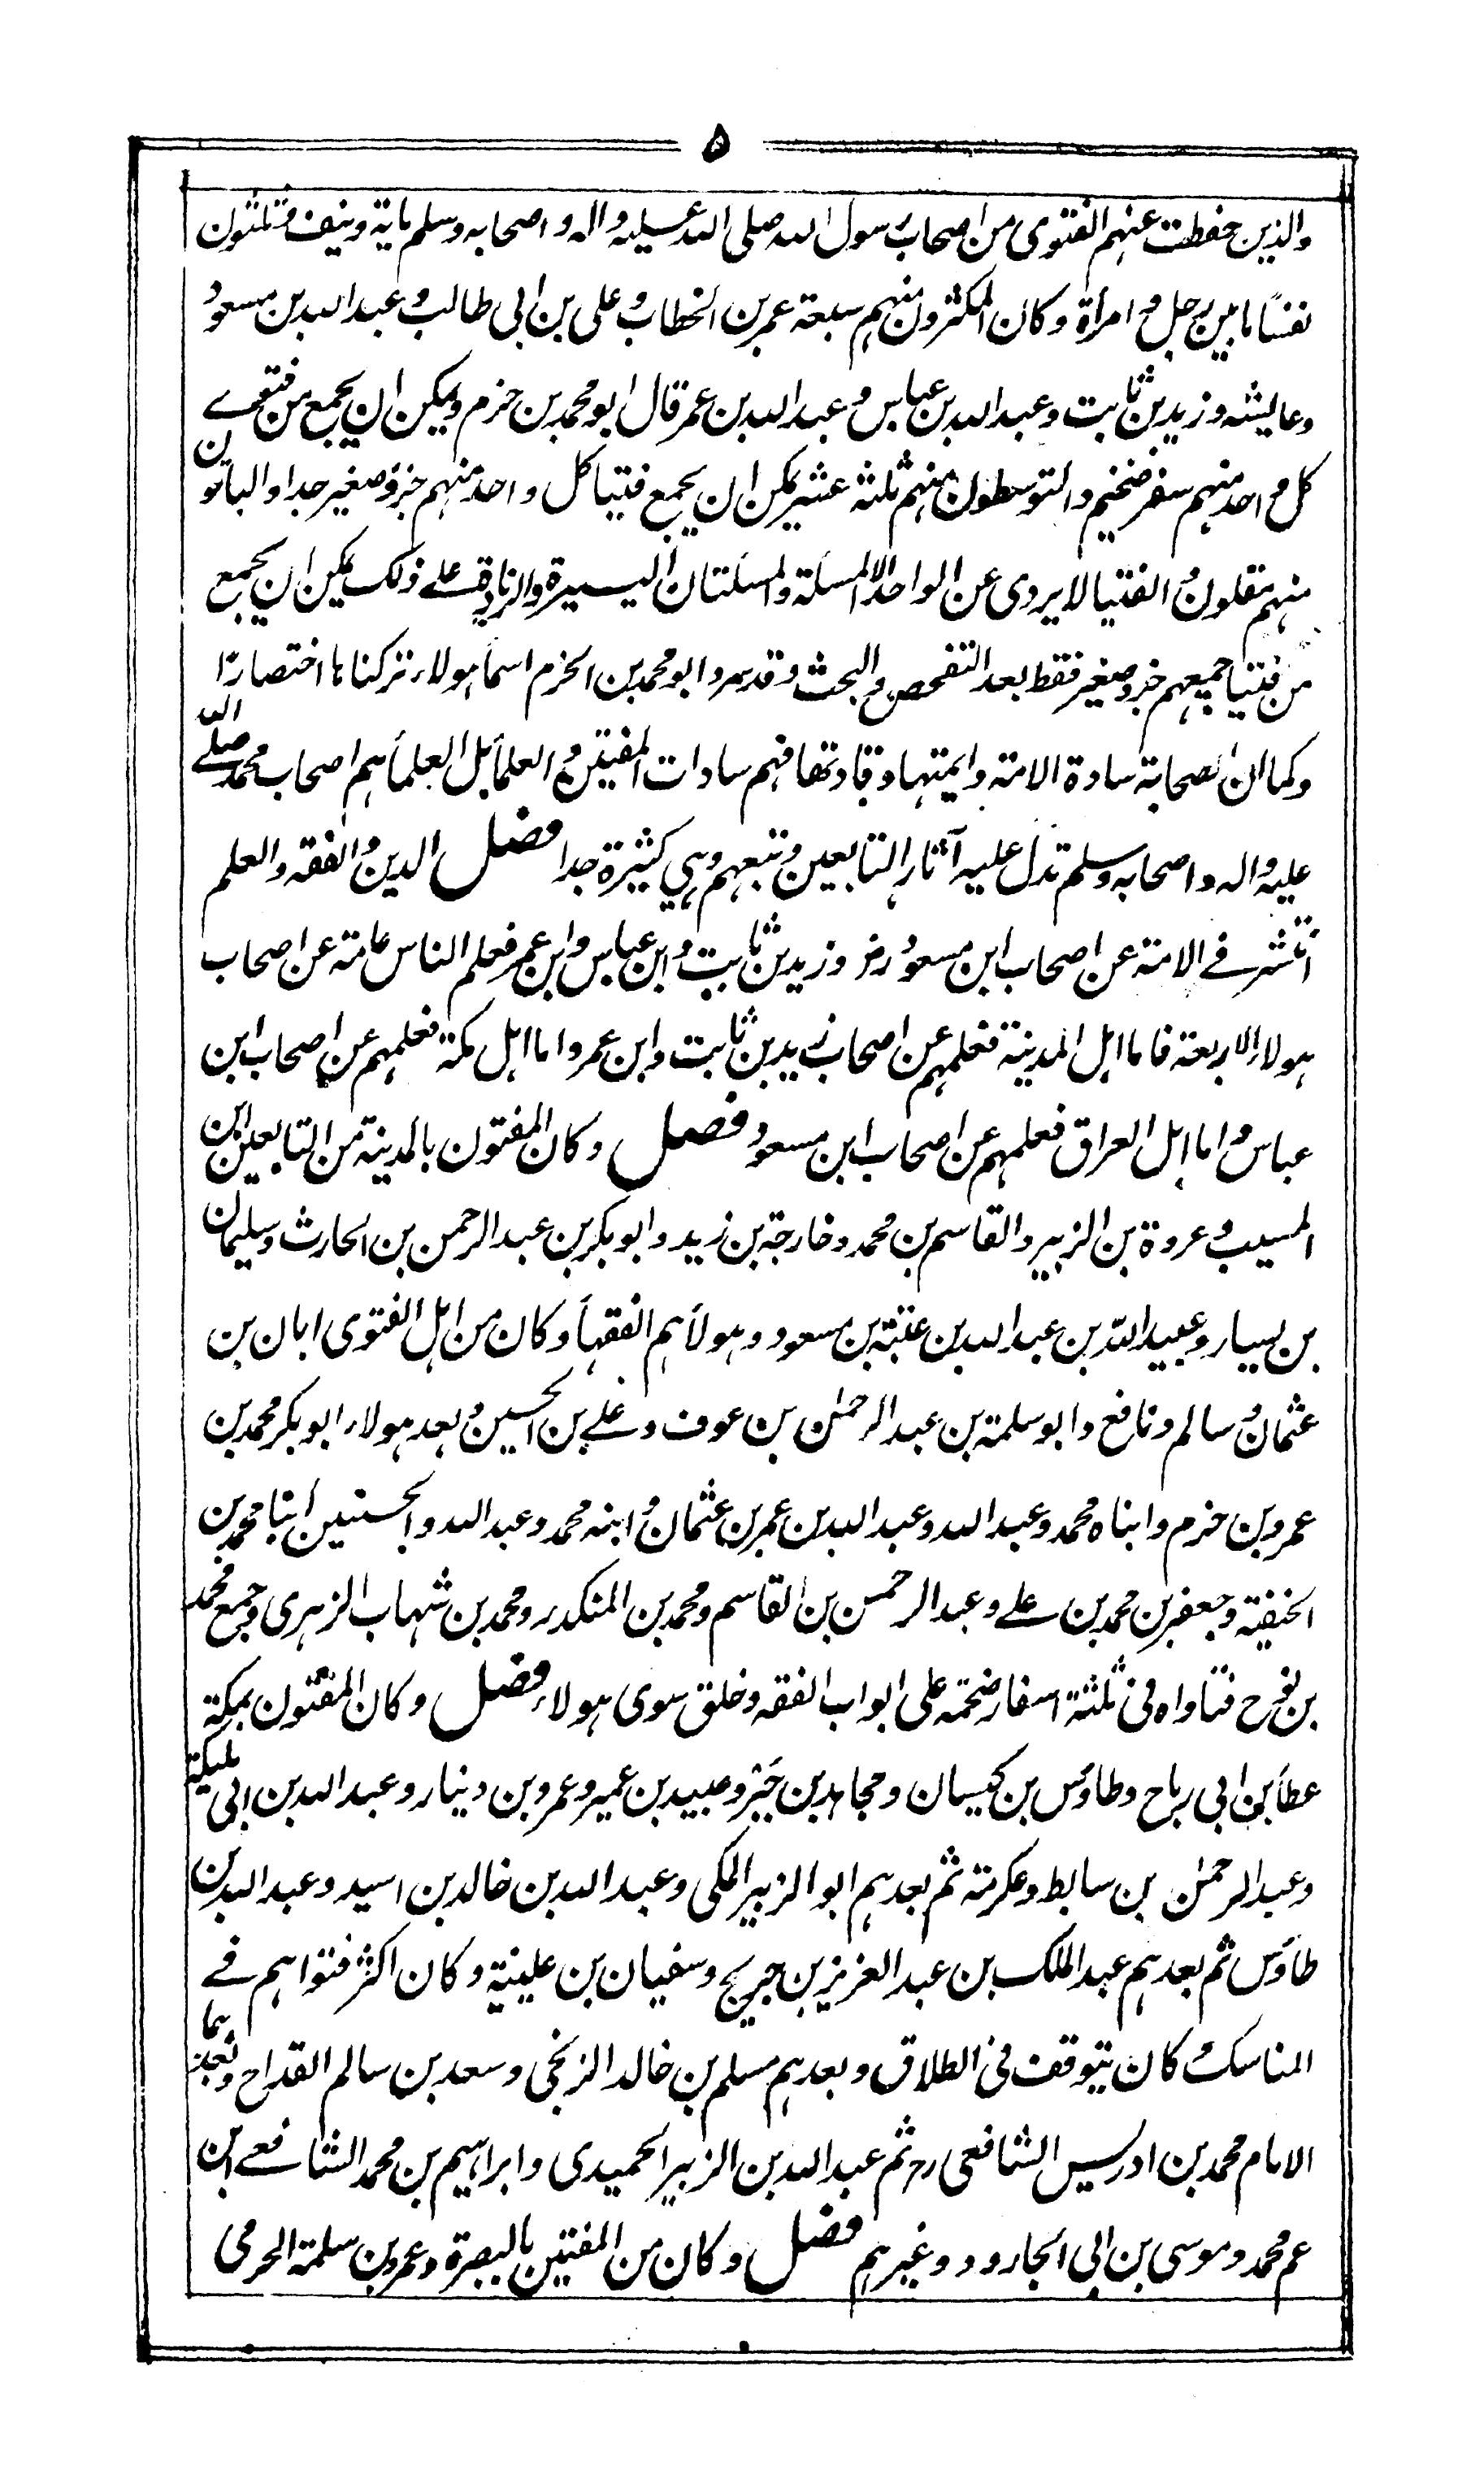 ۵
والذين حفظت عنهم الفتوى من اصحاب رسول الله صلى الله عليه واله و اصحابه وسلم ماية ونيف وثلثون
نفسًا ما بين رجل و امرأة وكان المكثرون منهم سبعة عمر بن الخطاب و على بن ابى طالب و عبد الله بن مسعود
وعايشه وزيد بن ثابت وعبد الله بن عباس و عبد الله بن عمر قال ابو محمد بن حزم ويمكن ان يجمع من فتوے
كل واحد منهم سفر ضخيم والمتوسطون منهم ثلثه عشر يمكن ان يجمع فتيا كل واحد منهم جزؤ صغير جدا والباقون
منهم مقلون الفتيا لا يروى عن الواحد الا المسئلة والمسئلتان اليسيرة والزيادة علے ذلك يمكن ان يجمع
من فتيا جميعهم جزو صغير فقط بعد التفحص والبحث وقد سرد ابو محمد بن الحزم اسما هولاء تركناها اختصارًا
وكما ان الصحابة سادة الامة وايمتها وقادتها فهم سادات المفتين و العلمأ بل العلمأ هم اصحاب محمد صلے الله
عليه واله واصحابه وسلم تدل عليه آثار التابعين وتبعهم وهي كثيرة جدا فصل الدين والفقه والعلم
انتشر فے الامة عن اصحاب ابن مسعود رض وزيد بن ثابت و ابن عباس وابن عمر فعلم الناس عامة عن اصحاب
هولاء الاربعة فاما اهل المدينة فعلمهم عن اصحاب زيد بن ثابت وابن عمر واما اهل مكة فعلمهم عن اصحاب ابن
عباس و اما اهل العراق فعلمهم عن اصحاب ابن مسعود فصل وكان المفتون بالمدينة من التابعين ابن
المسيب و عروة بن الزبير والقاسم بن محمد وخارجة بن زيد وابو بكر بن عبد الرحمن بن الحارث وسليمان
بن يسار وعبيد الله بن عبد الله بن عتبة بن مسعود وهولأ هم الفقهأ وكان من اهل الفتوى ابان بن
عثمان و سالم ونافع وابو سلمة بن عبد الرحمٰن بن عوف و علے بن الحسين و بعد هولاء ابو بكر محمد بن
عمرو بن حزم وابناه محمد وعبد الله وعبد الله بن عمر بن عثمان و ابنه محمد وعبد الله والحسنين ابنا محمد بن
الحنفية وجعفر بن محمد بن علے وعبد الرحمن بن القاسم ومحمد بن المنكدر ومحمد بن شهاب الزهرى وجمع محمد
بن نوح فتاواه فى ثلثة اسفار ضخمة على ابواب الفقه وخلق سوى هولاء فصل وكان المفتون بمكة
عطأ بن ابى رباح وطاؤس بن كيسان ومجاهد بن جبر وعبيد بن عمير وعمرو بن دينار وعبد الله بن ابى مليكة
وعبد الرحمٰن بن سابط وعكرمة ثم بعدهم ابو الزبير المكى وعبد الله بن خالد بن اسيد وعبد الله بن
طاؤس ثم بعدهم عبد الملك بن عبد العزيز بن جريج وسفيان بن عيينة وكان اكثر فتواهم فے
المناسك كان يتوقف فى الطلاق وبعدهم مسلم بن خالد الزنجى وسعد بن سالم القداح وبعدهما
الامام محمد بن ادريس الشافعى رح ثم عبد الله بن الزبير الحميدى وابراهيم بن محمد الشافعے ابن
عم محمد وموسى بن ابى الجارود وغيرهم فصل وكان من المفتين بالبصرة وعمرو بن سلمة الجرمى